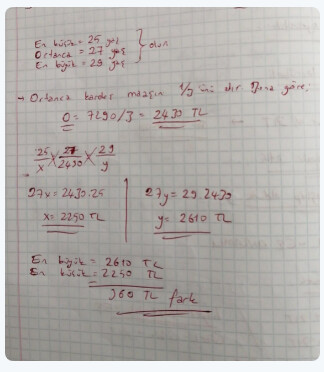 En küçük = 25 yaş
Ortanca = 27 yaş
En büyük = 29 yaş
} olsun
→ Ortanca kardeş maaşın 1/3 ünü alır. Buna göre;
O = 7290/3 = 2430 TL
→ 25/x 27/2430 29/y
27x = 2430.25
27y = 29.2430
x = 2250 TL
y = 2610 TL
En büyük = 2610 TL
En küçük = 2250 TL
360 TL fark